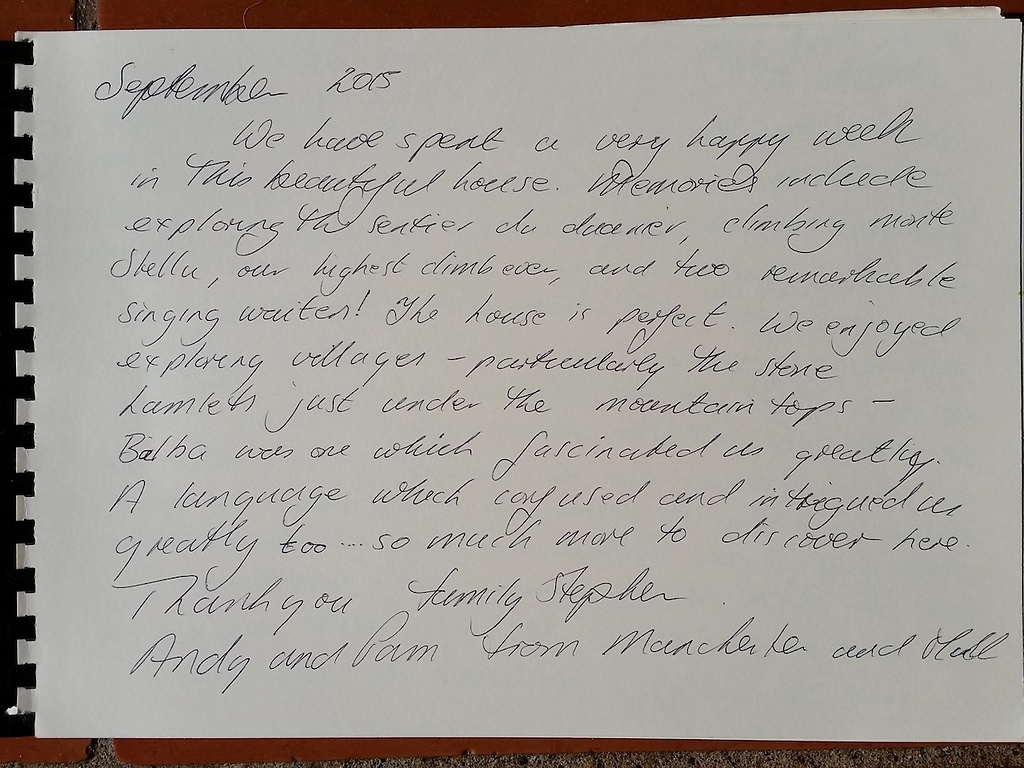 September 2015
We have spent a very happy week
in this beautiful house. Memories include
exploring the sentier du douanier, climbing monte
Stella, our highest climb ever, and two remarkable
singing waiters! The house is perfect. We enjoyed
exploring villages - particularly the stone
hamlets just under the mountain tops -
Balba was one which fascinated us greatly.
A language which confused and intrigued us
greatly too ... so much more to discover here.
Thank you family Stephen
Andy and Pam from Manchester and Hull